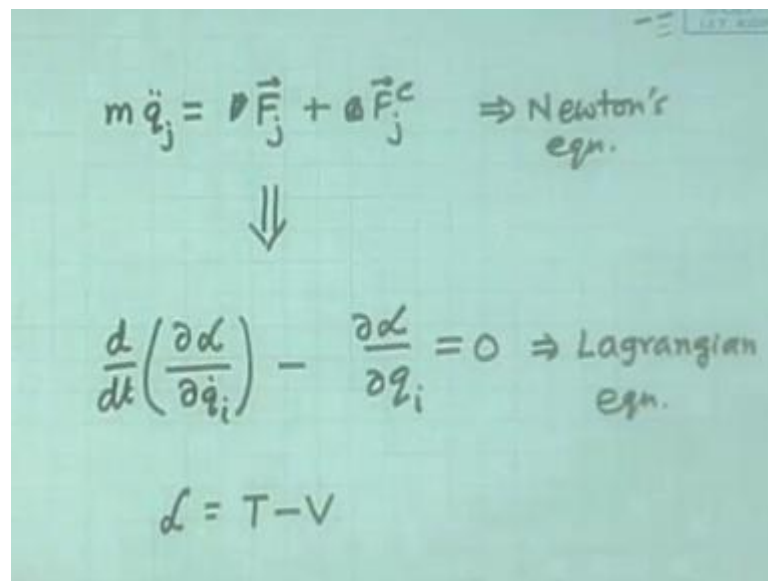 m q̈_j = F⃗_j + F⃗_j^c ⇒ Newton's
eqn.
⇓
d/dt (∂ℒ/∂q̇_i) − ∂ℒ/∂q_i = 0 ⇒ Lagrangian
eqn.
ℒ = T − V